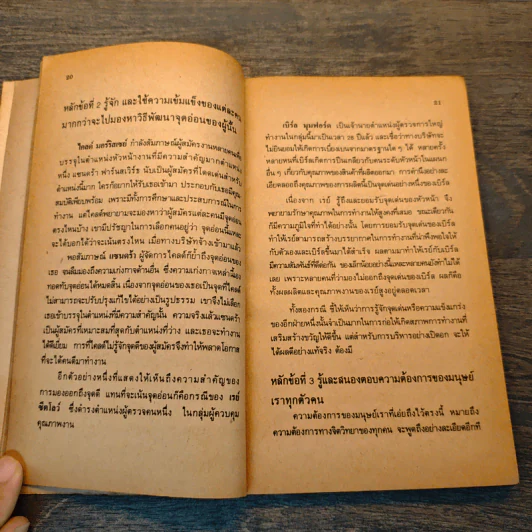 20
หลักข้อที่ 2 รู้จัก และใช้ความเข้มแข็งของแต่ละคน
มากกว่าจะไปมองหาวิธีพัฒนาจุดอ่อนของผู้นั้น
ไคลด์ มอร์ริสเซย์ กำลังสัมภาษณ์ผู้สมัครงานหลายคนเพื่อ
บรรจุในตำแหน่งหัวหน้างานที่มีความสำคัญมากตำแหน่ง
หนึ่ง แซนดร้า ฟาร์นสเวิร์ธ นับเป็นผู้สมัครโดดเด่นสำหรับ
ตำแหน่งนี้มาก ใครก็อยากให้รับเธอเข้ามา ประกอบกับเธอมีคุณ
สมบัติเพียบพร้อม เพราะมีทั้งการศึกษาและประสบการณ์ในการ
ทำงาน แต่ไคลด์พยายามจะมองหาว่าผู้สมัครแต่ละคนมีจุดอ่อน
ตรงไหนบ้าง เขามีปรัชญาในการเลือกคนอยู่ว่า จุดอ่อนนั้นแหละ
จะได้บอกได้ว่าจะเน้นตรงไหน เมื่อทางบริษัทจ้างเข้ามาแล้ว
พอสัมภาษณ์ แซนดร้า ผู้จัดการไคลด์ก็ย้ำถึงจุดอ่อนของ
เธอ จนลืมมองถึงความเก่งทางด้านอื่น ซึ่งความเก่งเหล่านี้มอง
ทดทับจุดอ่อนได้หมดสิ้น เนื่องจากจุดอ่อนของเธอเป็นจุดที่ไคลด์
ไม่สามารถจะปรับปรุงแก้ไขได้อย่างเป็นรูปธรรม เขาจึงไม่เลือก
เธอเข้าบรรจุในตำแหน่งที่มีความสำคัญนั้น ความจริงแล้วแซนดร้า
เป็นผู้สมัครที่เหมาะสมที่สุดกับตำแหน่งที่ว่าง และเธอจะทำงาน
ได้ดีเยี่ยม การที่ไคลด์ไม่รู้จักจุดดีของผู้สมัครจึงทำให้พลาดโอกาส
ที่จะได้คนดีมาทำงาน
อีกตัวอย่างหนึ่งที่แสดงให้เห็นถึงความสำคัญของ
การมองออกถึงจุดดี แทนที่จะเน้นจุดอ่อนก็คือกรณีของ เรย์
ซึ่งดำรงตำแหน่งผู้ตรวจคนหนึ่ง ในกลุ่มผู้ควบคุม
คุณภาพงาน
21
เบิร์ล มุมฟอร์ด เป็นเจ้านายตำแหน่งผู้ตรวจการใหญ่
ทำงานในกลุ่มนี้มาเป็นเวลา 28 ปีแล้ว และเชื่อว่าทางบริษัทจะ
ไม่ยินยอมให้เกิดการเบี่ยงเบนจากมาตรฐานใด ๆ ได้ หลายครั้ง
หลายหนที่เบิร์ลเกิดการปีนเกลียวกับคนระดับหัวหน้าในแผนก
อื่น ๆ เกี่ยวกับคุณภาพของสินค้าที่ผลิตออกมา การคำนึงอย่างละ
เอียดลออถึงคุณภาพของการผลิตนี้เป็นจุดเด่นอย่างหนึ่งของเบิร์ล
เนื่องจาก เรย์ รู้ถึงและยอมรับจุดเด่นของหัวหน้า จึง
พยายามรักษาคุณภาพในการทำงานให้สูงคงที่เสมอ ขณะเดียวกัน
ก็มีความภูมิใจที่ทำได้อย่างนั้น โดยการยอมรับจุดเด่นของเบิร์ล
ทำให้เรย์สามารถสร้างบรรยากาศในการทำงานที่น่าพึงพอใจให้
กับตัวเองและเบิร์ลขึ้นมาได้สำเร็จ ผลตามมาทำให้เรย์กับเบิร์ล
มีความสัมพันธ์ที่ดีต่อกัน ของเล็กน้อยอย่างนี้แหละหลายคนยังทำไม่ได้
เลย เพราะหลายคนที่ว่ามองไม่ออกถึงจุดเด่นของเบิร์ล ผลก็คือ
ทั้งผลผลิตและคุณภาพงานของเรย์สูงอยู่ตลอดเวลา
ทั้งสองกรณี ชี้ให้เห็นว่าการรู้จักจุดเด่นหรือความแข็งแกร่ง
ของอีกฝ่ายหนึ่งนั้นจำเป็นมากในการก่อให้เกิดสภาพการทำงานที่
เสริมสร้างขวัญให้ดีขึ้น แต่สำหรับการบริหารอย่างเปิดอก จะให้
ได้ผลดีอย่างแท้จริง ต้องมี
หลักข้อที่ 3 รู้และสนองตอบความต้องการของมนุษย์
เราทุกตัวคน
ความต้องการของมนุษย์เราที่เอ่ยถึงไว้ตรงนี้ หมายถึง
ความต้องการทางจิตวิทยาของทุกคน จะพูดถึงอย่างละเอียดอีกที